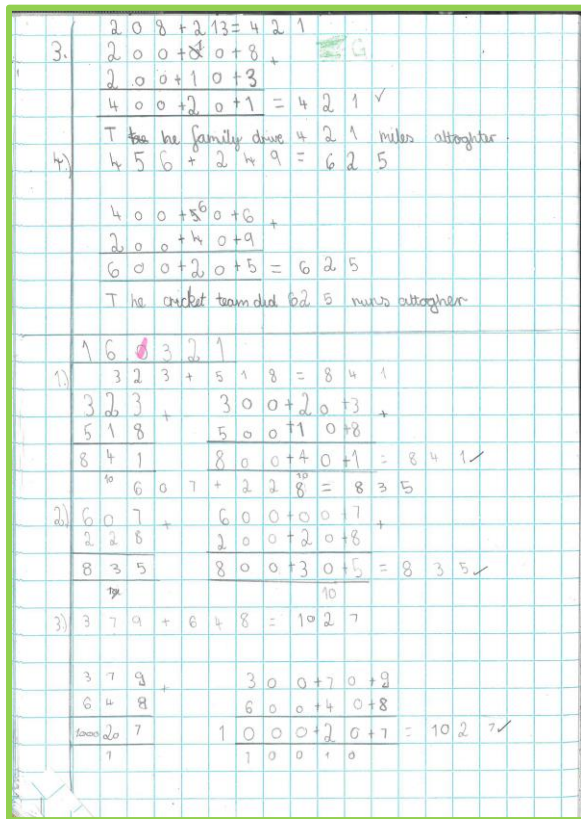 2 0 8 + 2 13 = 4 2 1
3. 2 0 0 + 0 + 8 +
2 0 0 + 1 0 + 3
4 0 0 + 2 0 + 1 = 4 2 1 ✓
G
T he family drive 4 2 1 miles altoghter.
4.) 4 5 6 + 2 4 9 = 6 2 5
4 0 0 + 5 6 0 + 6 +
2 0 0 + 4 0 + 9
6 0 0 + 2 0 + 5 = 6 2 5
T he cricket team did 62 5 runs altogher
1 6. 0 3 2 1
1.) 3 2 3 + 5 1 8 = 8 4 1
3 2 3 + 3 0 0 + 2 0 + 3 +
5 1 8 5 0 0 + 1 0 + 8
8 4 1 8 0 0 + 4 0 + 1 = 8 4 1 ✓
10 10
6 0 7 + 2 2 8 = 8 3 5
2) 6 0 7 + 6 0 0 + 0 0 + 7 +
2 2 8 2 0 0 + 2 0 + 8
8 3 5 8 0 0 + 3 0 + 5 = 8 3 5 ✓
10
3.) 3 7 9 + 6 4 8 = 10 2 7
3 7 9 + 3 0 0 + 7 0 + 9
6 4 8 6 0 0 + 4 0 + 8
1000 20 7 1 0 0 0 + 2 0 + 7 = 10 2 7 ✓
1 1 0 0 1 0